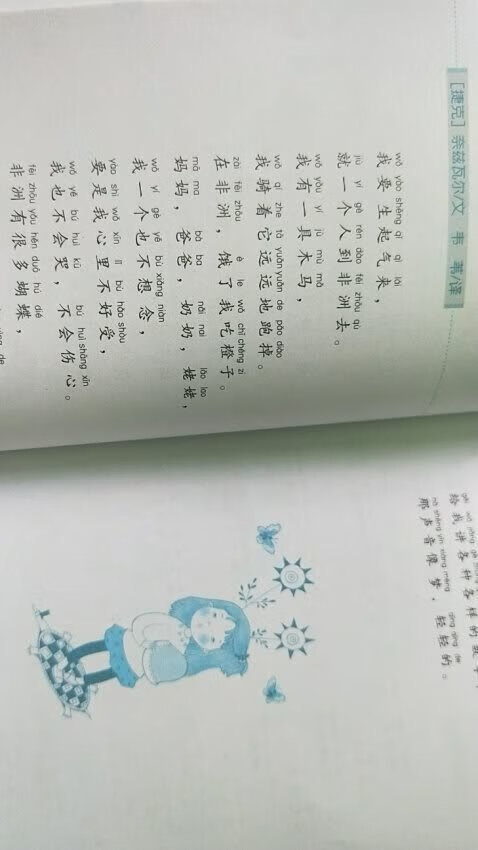 [捷克] 奈兹瓦尔/文 韦 苇/译
wǒ yào shēng qǐ qì lái
我要生起气来，
jiù yí gè rén dào fēi zhōu qù
就一个人到非洲去。
wǒ yǒu yí jù mù mǎ
我有一具木马，
wǒ qí zhe tā yuǎn yuǎn de pǎo diào
我骑着它远远地跑掉。
zài fēi zhōu è le wǒ chī chéng zi
在非洲，饿了我吃橙子。
mā ma bà ba nǎi nai lǎo lao
妈妈，爸爸，奶奶，姥姥，
wǒ yí gè yě bù xiǎng niàn
我一个也不想念，
yào shi wǒ xīn lǐ bù hǎo shòu
要是我心里不好受，
wǒ yě bú huì kū bú huì shāng xīn
我也不会哭，不会伤心。
fēi zhōu yǒu hěn duō hú dié
非洲有很多蝴蝶，
gěi wǒ jiǎng gè
给我讲各种各样的故事，
nà shēng yīn xiàng mèng qīng qīng de
那声音像梦，轻轻的。